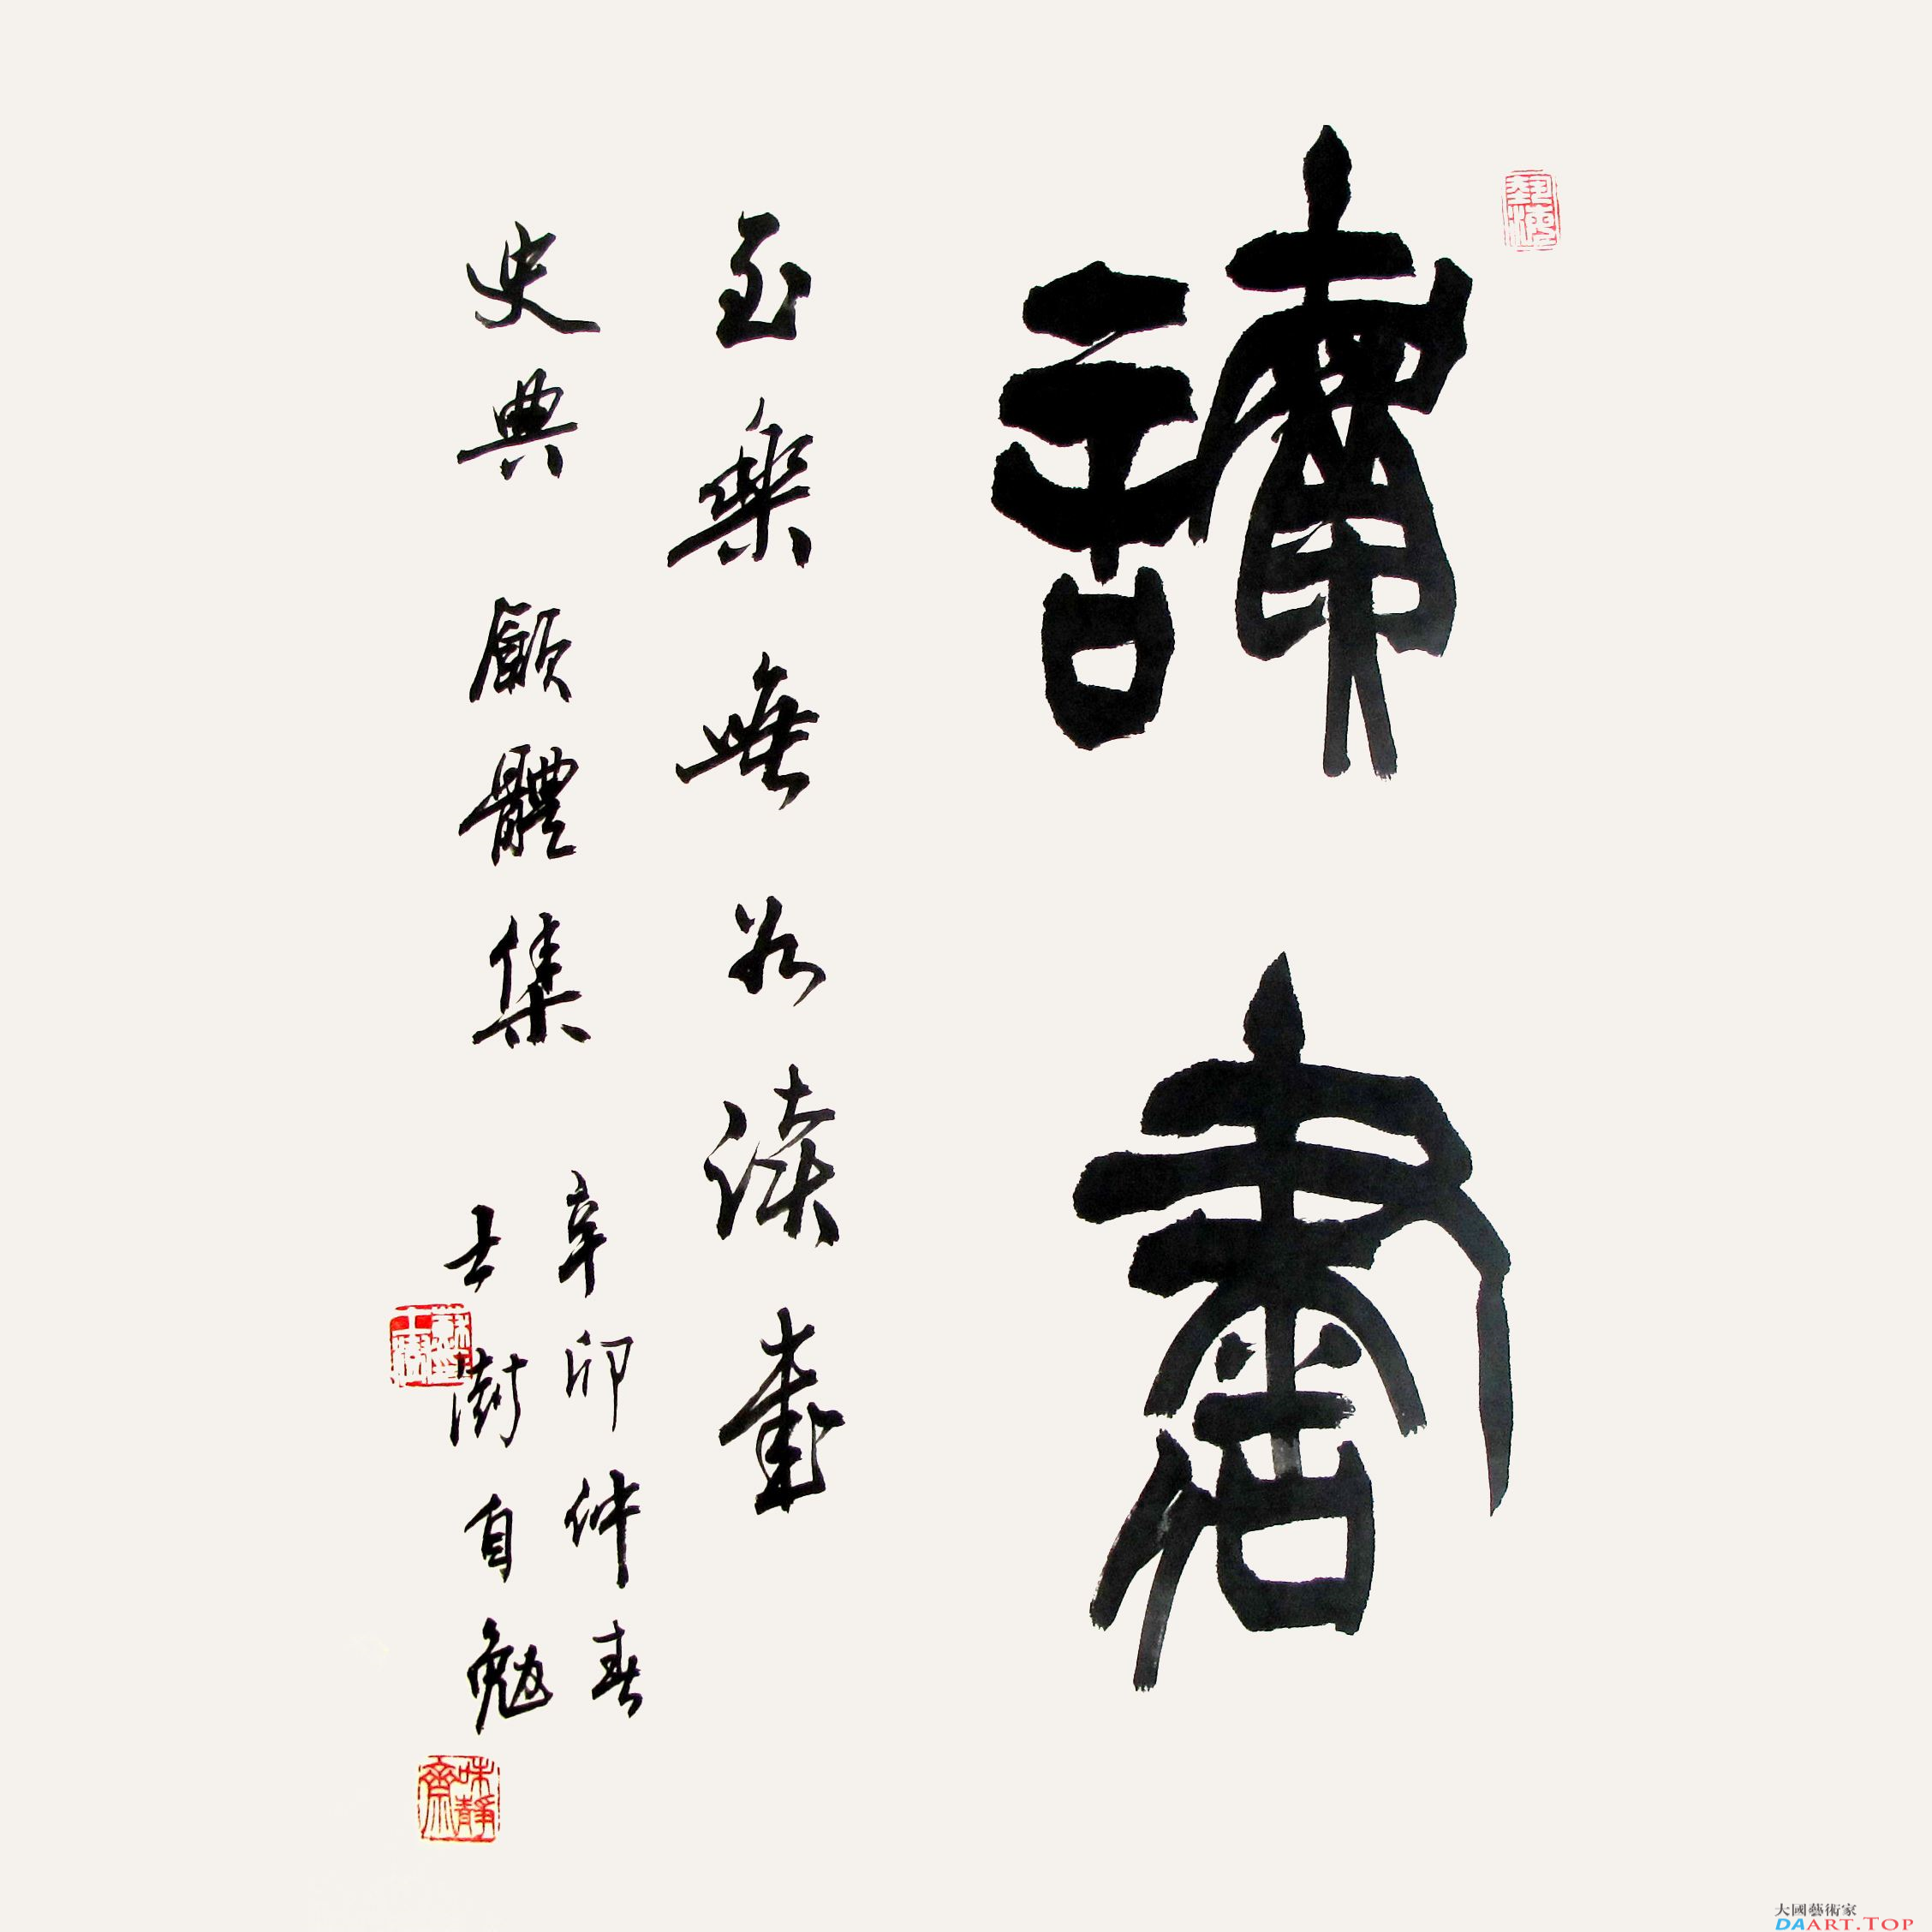 讀書
至樂無如读書
史典
顾體集
辛卯仲春
士澍自勉
味靜齋
大國藝術家
DAART.TOP